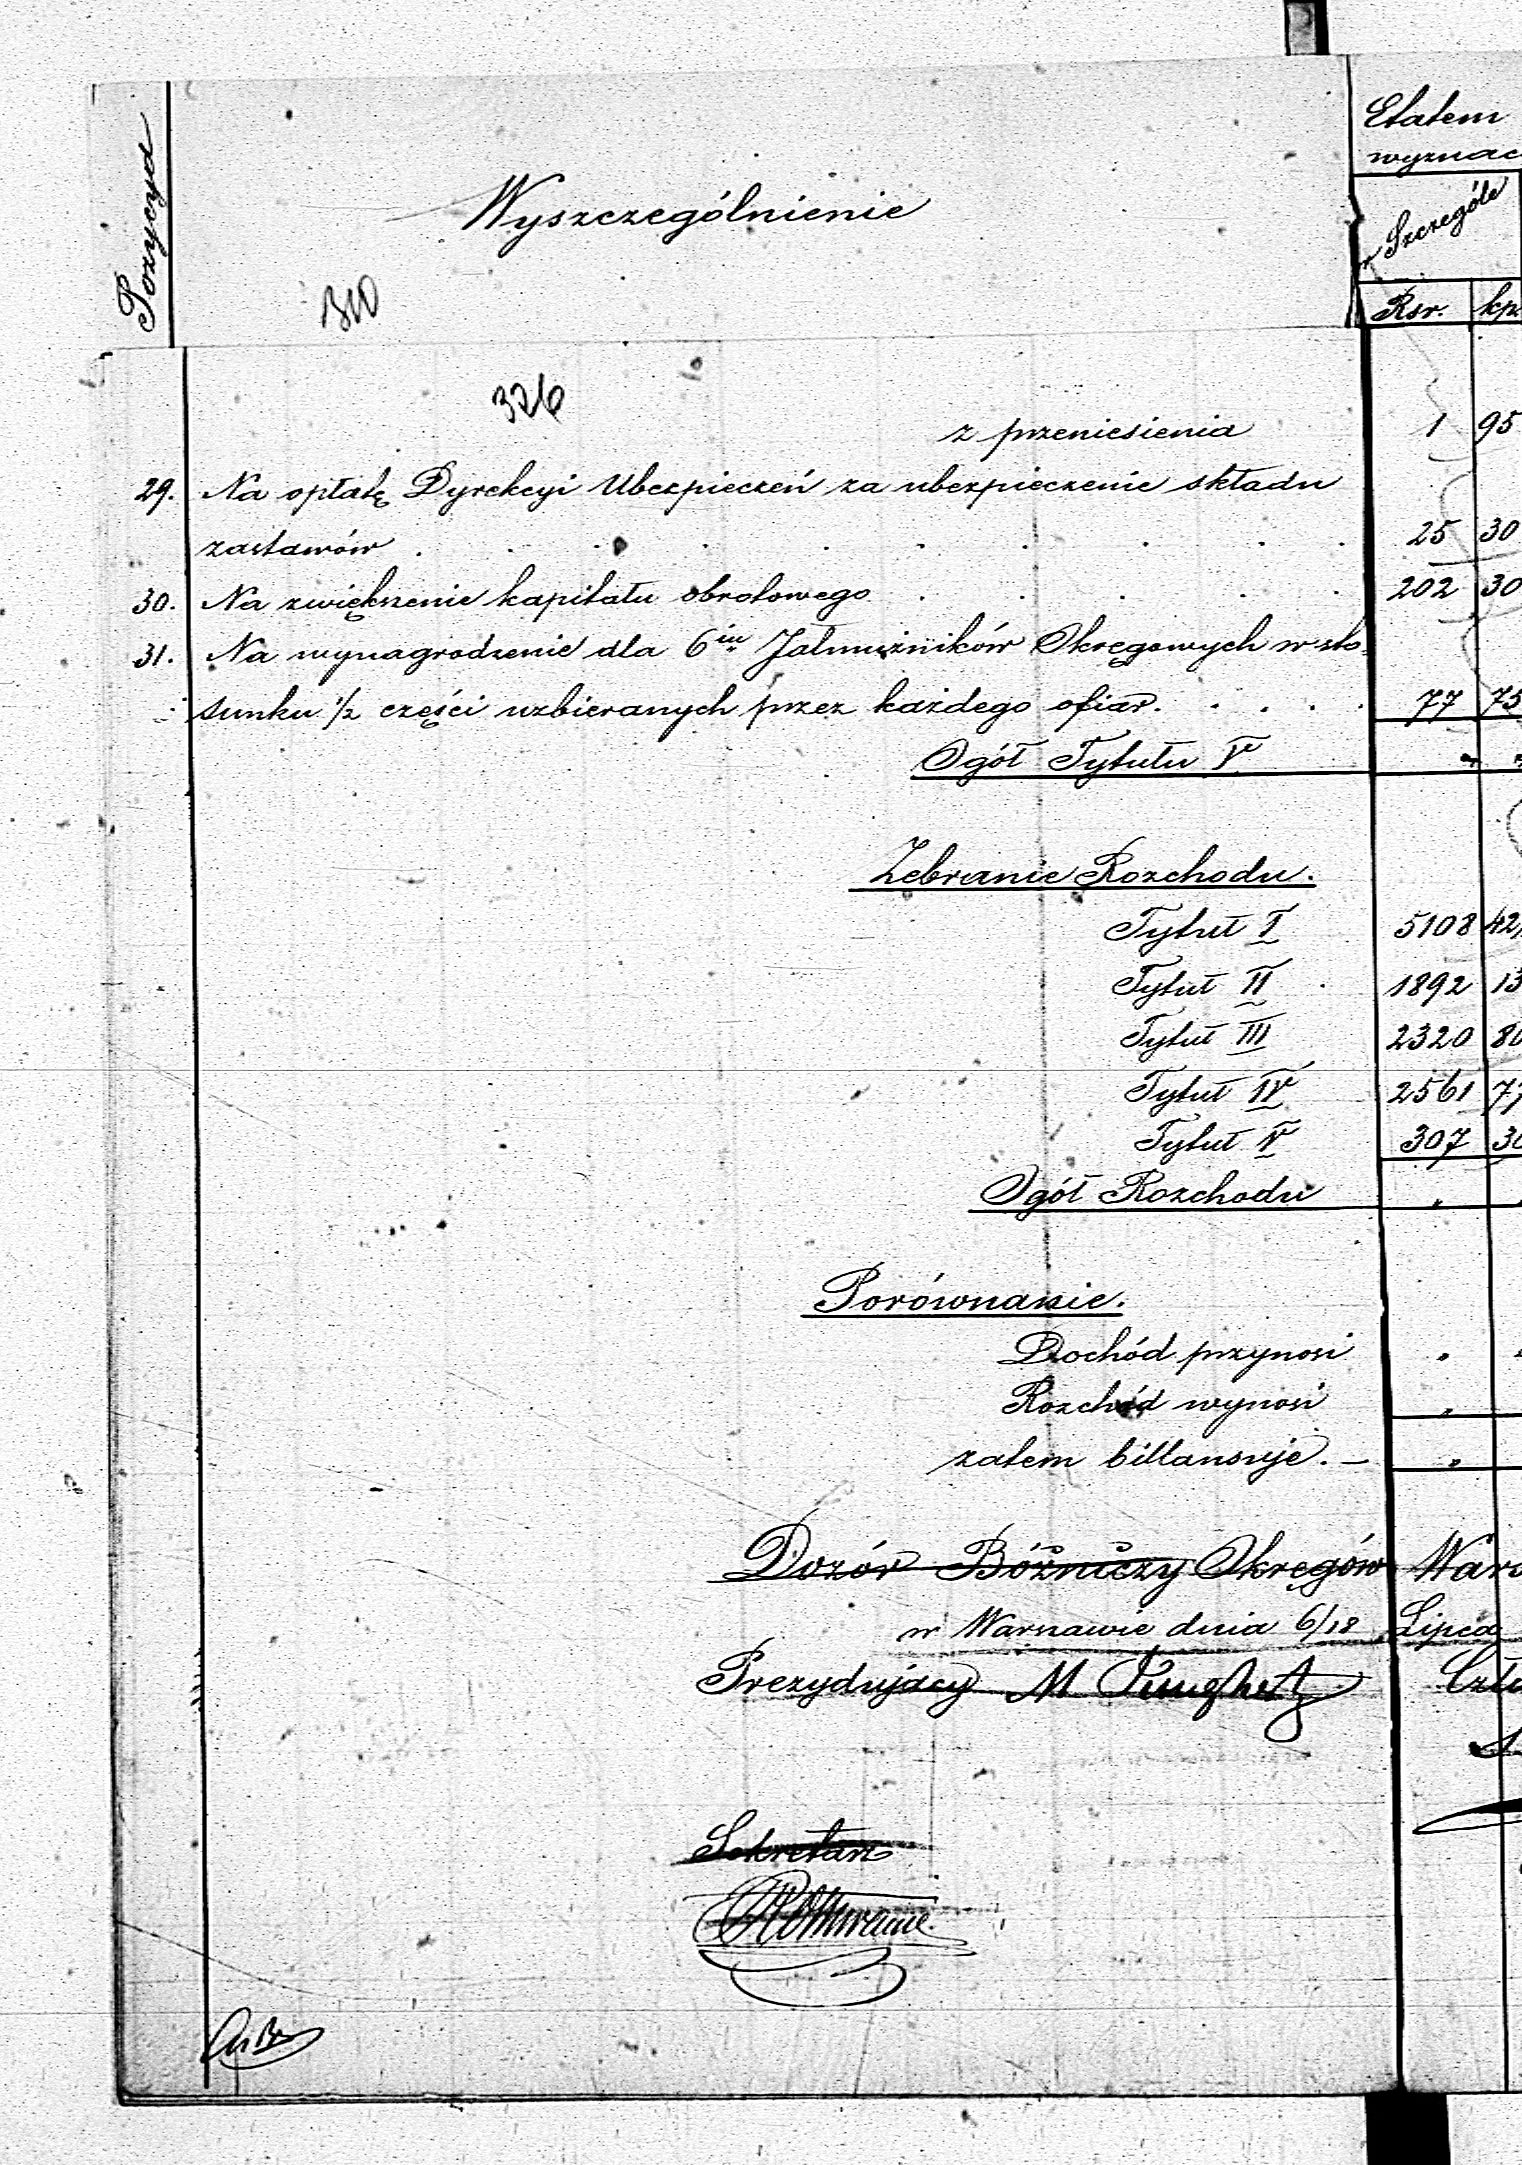 Pozycya
Wyszczególnienie
Etatem
wyznac
w Szczególe
Rsr. kp
310
326
z przeniesienia 1 95
29. Na opłatę Dyrekcyi Ubezpieczeń za ubezpieczenie składu
zastawów . . . . . . . . . 25 30
30. Na zwiększenie kapitału obrotowego . . . . . 202 30
31. Na wynagrodzenie dla 6iu Jałmużników Okręgowych w sto=
sunku 1/2 części uzbieranych przez każdego ofiar. . . . . 77 75
Ogół Tytułu V " "
Zebranie Rozchodu.
Tytuł I 5108 42
Tytuł II 1892 13
Tytuł III 2320 80
Tytuł IV 2561 77
Tytuł V 307 30
Ogół Rozchodu "
Porównanie.
Dochód przynosi "
Rozchód wynosi "
zatem billansuje. — "
Dozór Bóżniczy Okręgów Wars
w Warszawie dnia 6/18 Lipca
Prezydujący M Czło
Sekretarz